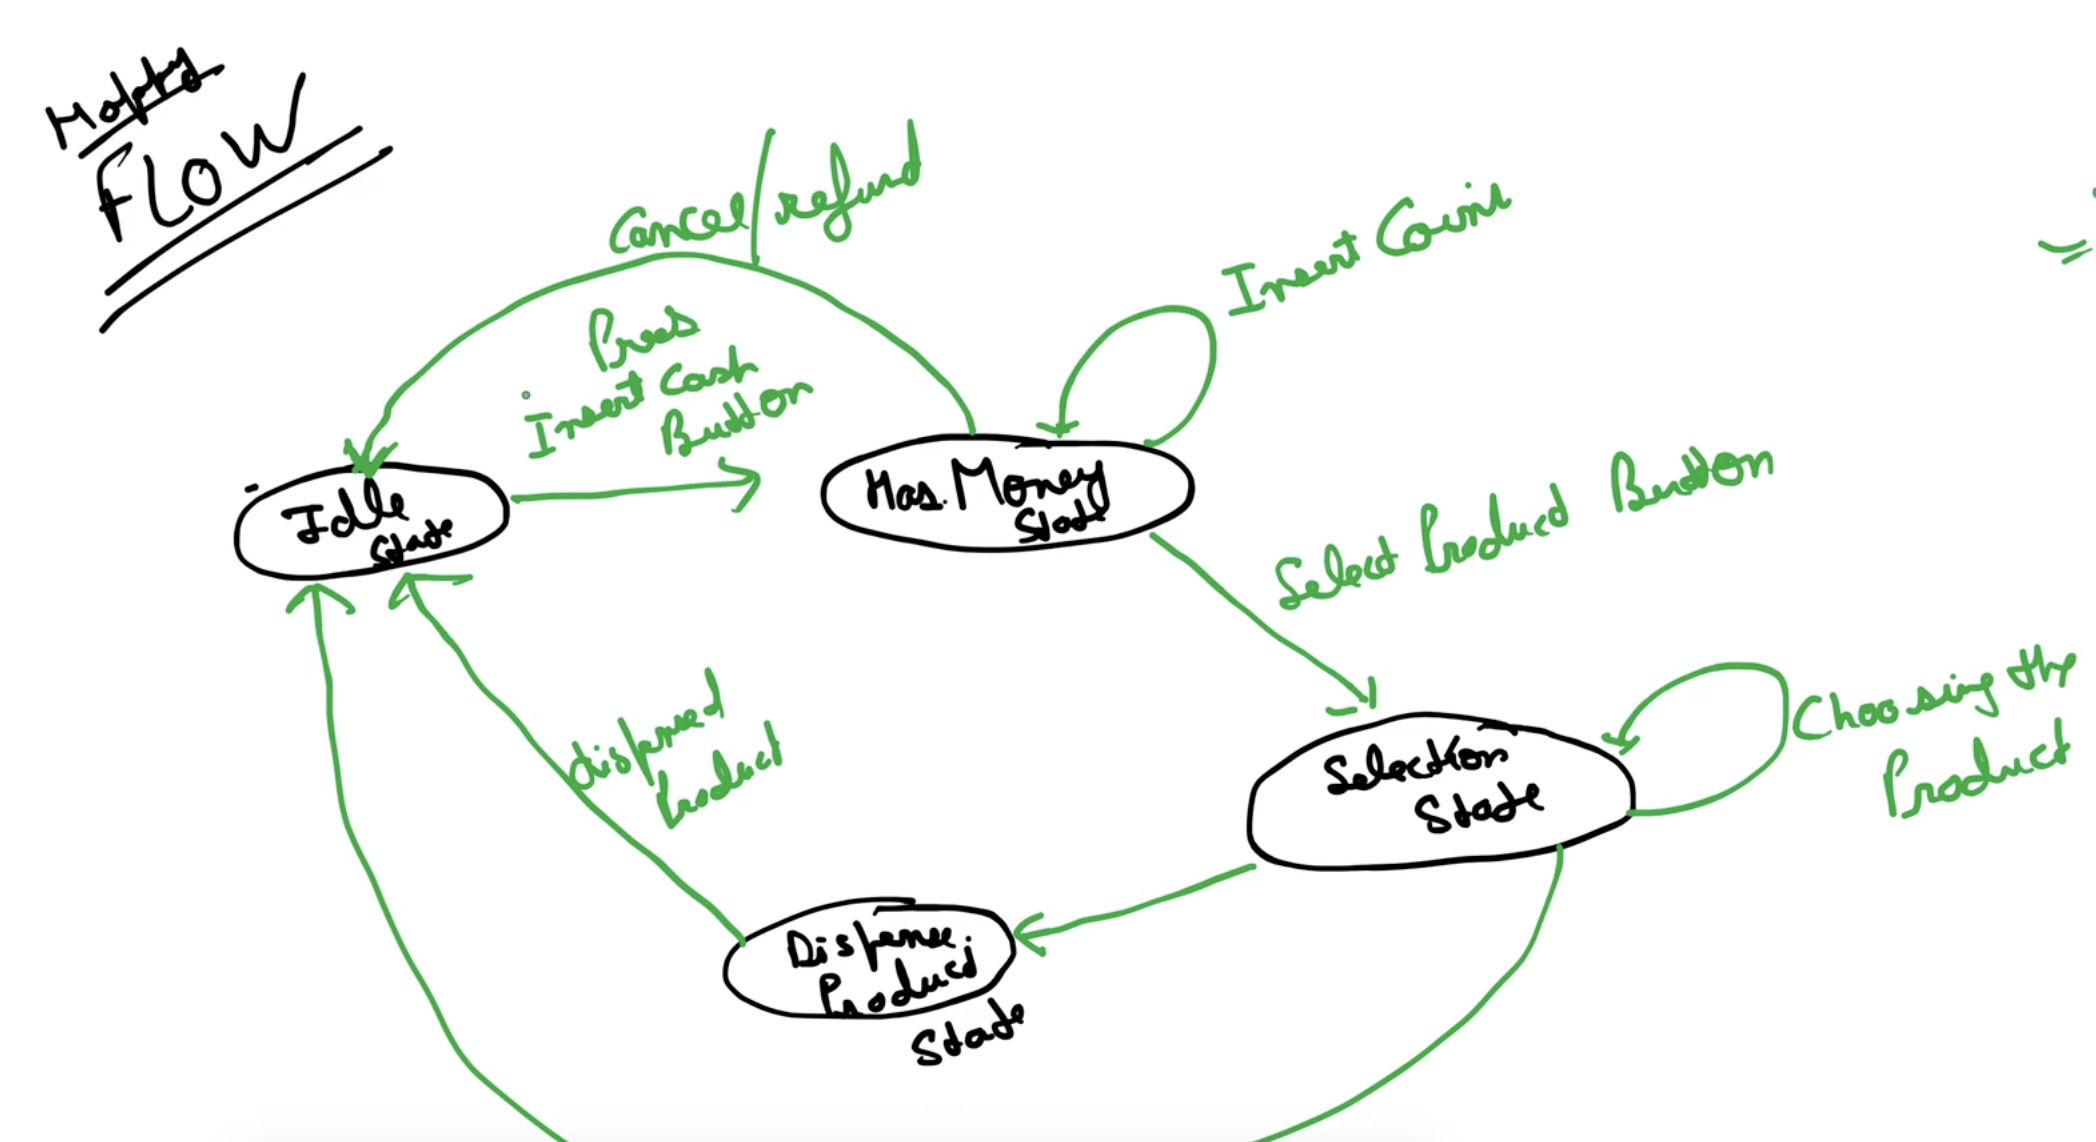 Happy
FLOW
Cancel/refund
Insert Coins
Press
Insert Cash
Button
Idle
State
Has Money
State
Select Product Button
Selection
State
Choosing the
Product
dispensed
Product
Dispense
Product
State